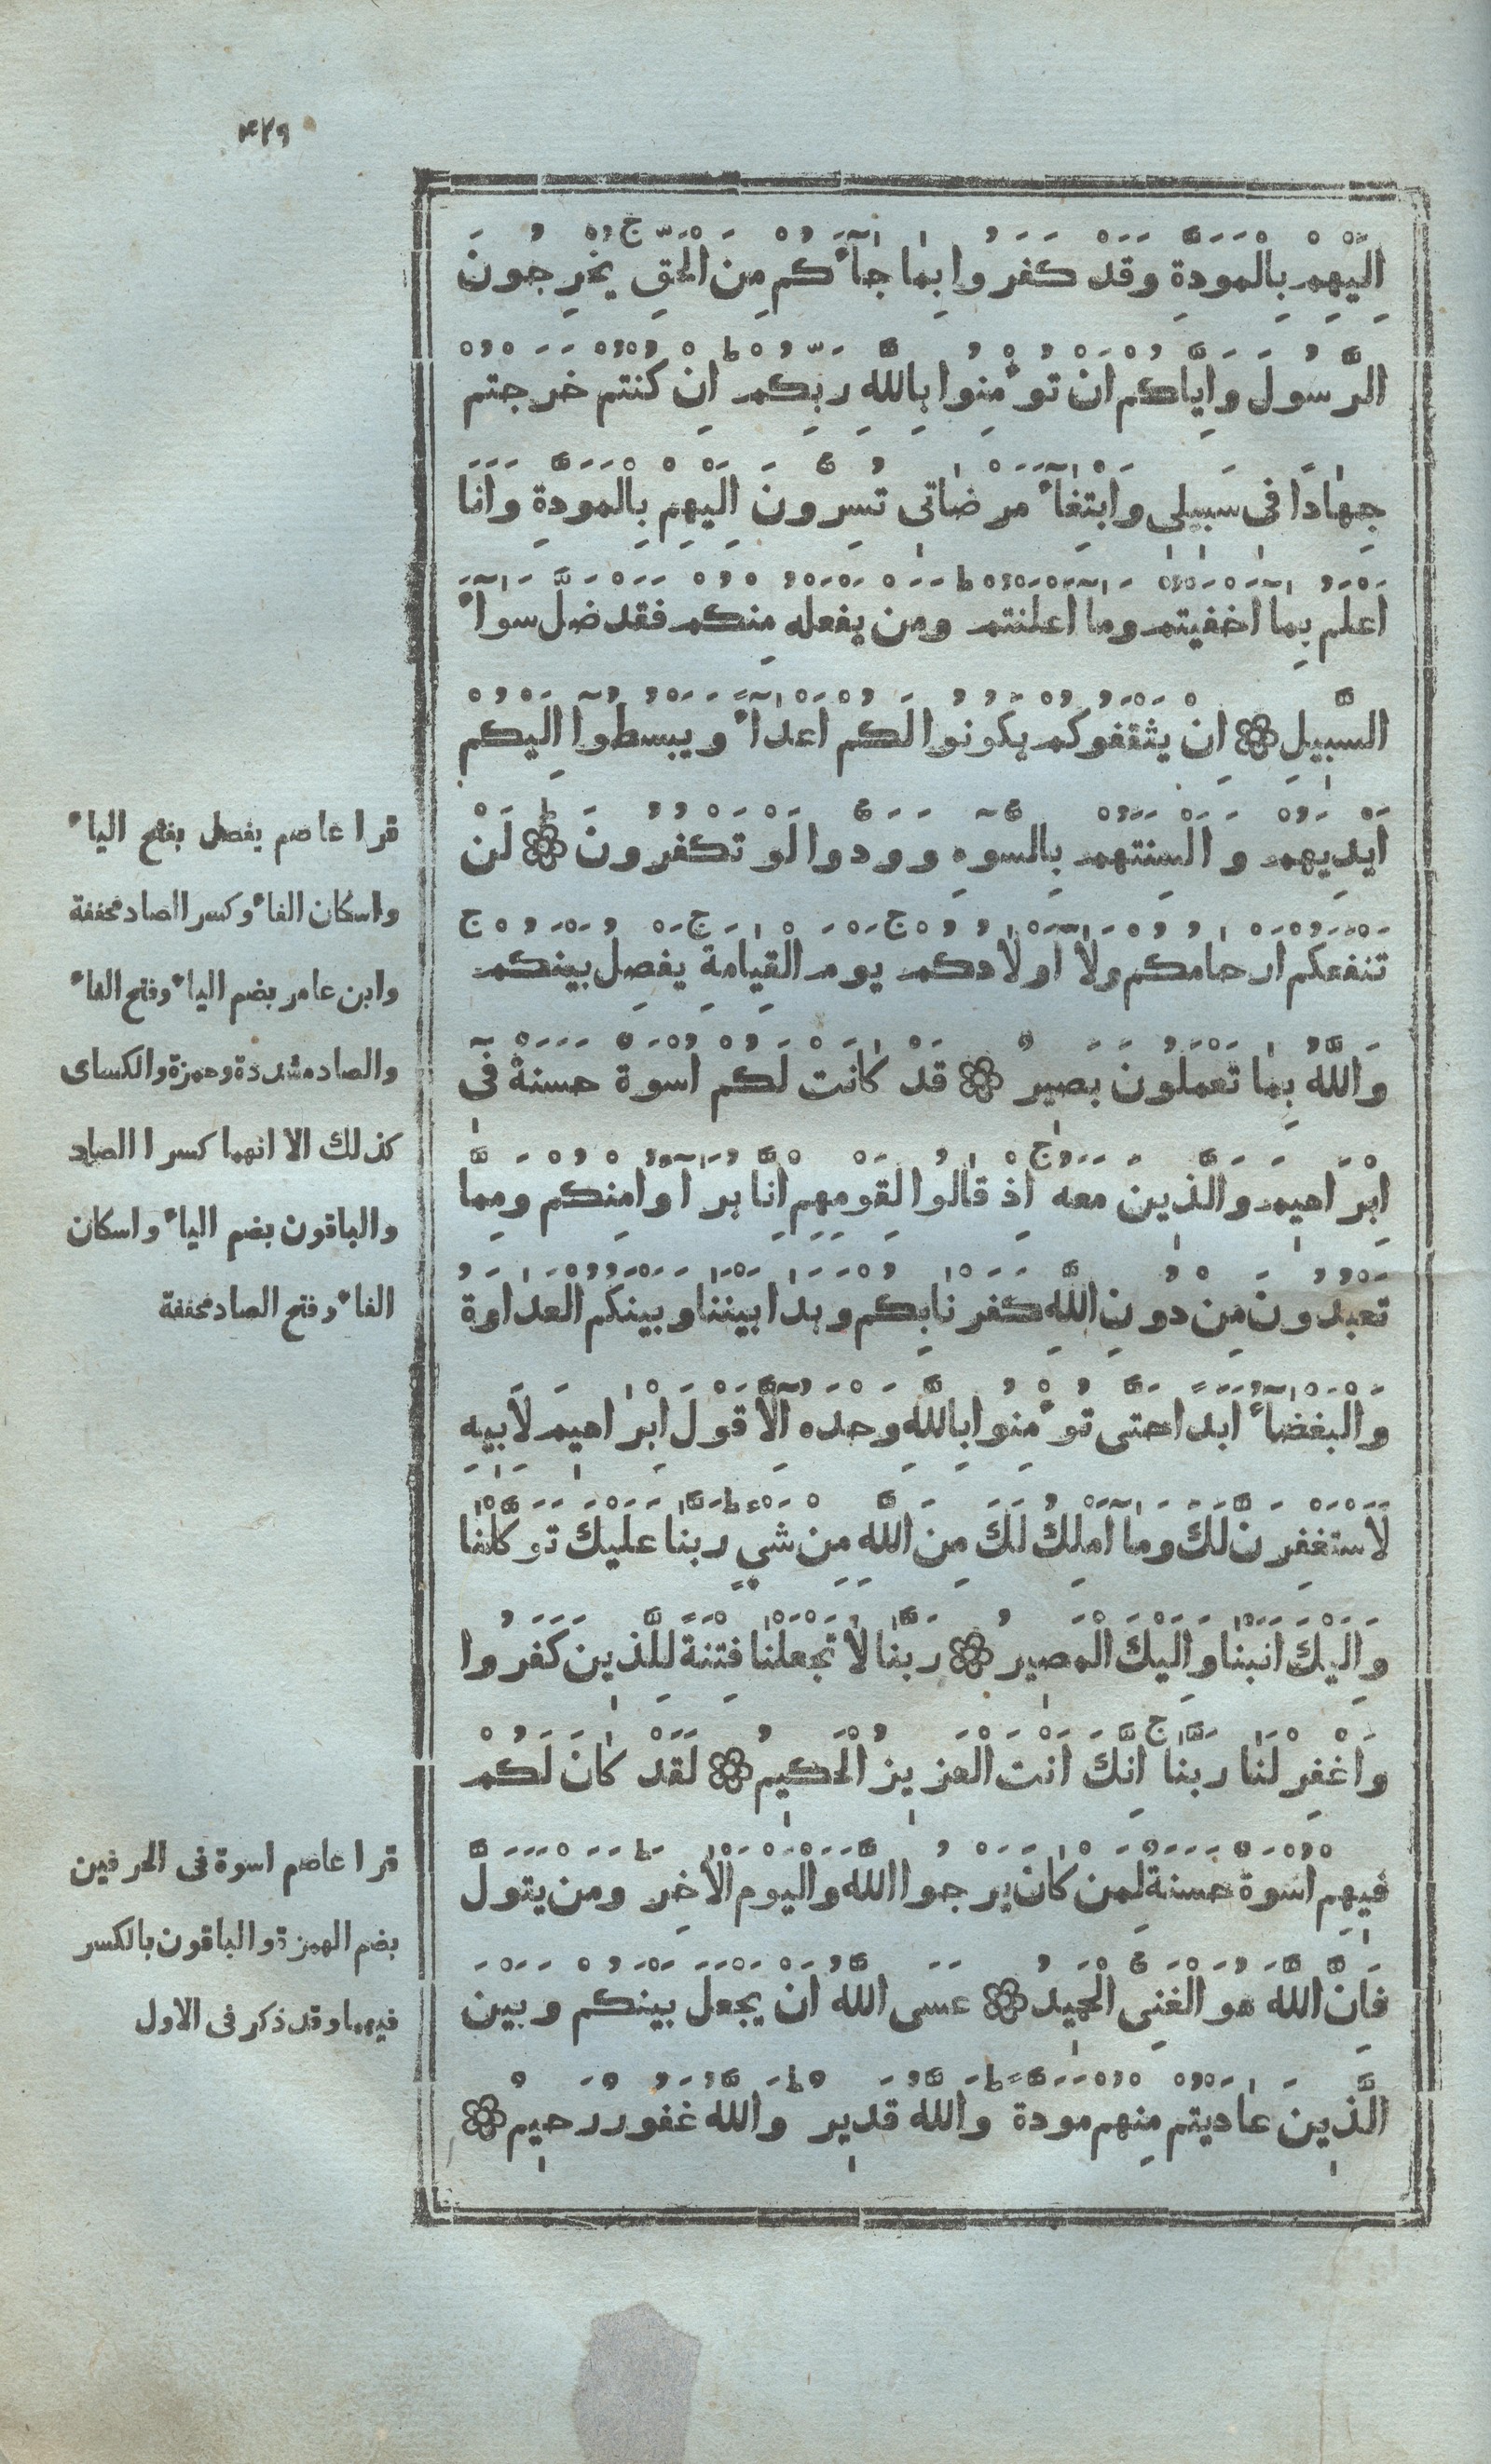 ٤٧٩
اِلَيْهِمْ بِالْمَوَدَّةِ وَقَدْ كَفَرُوا بِمٰا جٰآءَكُمْ مِنَ الْحَقِّ ج يُخْرِجُونَ
الرَّسُولَ وَاِيَّاكُمْ اَنْ تُؤْمِنُوا بِاللَّهِ رَبِّكُمْ ط اِنْ كُنْتُمْ خَرَجْتُمْ
جِهٰادًا فِى سَبِيلِى وَابْتِغٰآءَ مَرْضٰاتِى تُسِرُّونَ اِلَيْهِمْ بِالْمَوَدَّةِ وَاَنَا
اَعْلَمُ بِمٰآ اَخْفَيْتُمْ وَمٰآ اَعْلَنْتُمْ ط وَمَنْ يَفْعَلْهُ مِنْكُمْ فَقَدْ ضَلَّ سَوٰآءَ
السَّبِيلِ ۝ اِنْ يَثْقَفُوكُمْ يَكُونُوا لَكُمْ اَعْدٰآءً وَيَبْسُطُوآ اِلَيْكُمْ
اَيْدِيَهُمْ وَاَلْسِنَتَهُمْ بِالسُّوٓءِ وَوَدُّوا لَوْ تَكْفُرُونَ ط ۝ لَنْ
تَنْفَعَكُمْ اَرْحٰامُكُمْ وَلٰآ اَوْلٰادُكُمْ ج يَوْمَ الْقِيٰامَةِ ج يَفْصِلُ بَيْنَكُمْ ج
وَاللَّهُ بِمٰا تَعْمَلُونَ بَصِيرٌ ۝ قَدْ كٰانَتْ لَكُمْ اُسْوَةٌ حَسَنَةٌ فِىٓ
اِبْرَاهِيمَ وَالَّذِينَ مَعَهُ ج اِذْ قٰالُوا لِقَوْمِهِمْ اِنَّا بُرَآٰؤُا مِنْكُمْ وَمِمَّا
تَعْبُدُونَ مِنْ دُونِ اللَّهِ كَفَرْنٰا بِكُمْ وَبَدٰا بَيْنَنٰا وَبَيْنَكُمُ الْعَدٰاوَةُ
وَالْبَغْضٰآءُ اَبَدًا حَتَّى تُؤْمِنُوا بِاللَّهِ وَحْدَهُ اِلَّا قَوْلَ اِبْرٰاهِيمَ لِاَبِيهِ
لَاَسْتَغْفِرَنَّ لَكَ وَمٰآ اَمْلِكُ لَكَ مِنَ اللَّهِ مِنْ شَىْءٍ ط رَبَّنٰا عَلَيْكَ تَوَكَّلْنٰا
وَاِلَيْكَ اَنَبْنٰا وَاِلَيْكَ الْمَصِيرُ ۝ رَبَّنٰا لٰا تَجْعَلْنٰا فِتْنَةً لِلَّذِينَ كَفَرُوا
وَاغْفِرْ لَنٰا رَبَّنٰا ج اِنَّكَ اَنْتَ الْعَزِيزُ الْحَكِيمُ ۝ لَقَدْ كٰانَ لَكُمْ
فِيهِمْ اُسْوَةٌ حَسَنَةٌ لِمَنْ كٰانَ يَرْجُوا اللَّهَ وَالْيَوْمَ الْاٰخِرَ ط وَمَنْ يَتَوَلَّ
فَاِنَّ اللَّهَ هُوَ الْغَنِىُّ الْحَمِيدُ ۝ عَسَى اللَّهُ اَنْ يَجْعَلَ بَيْنَكُمْ وَبَيْنَ
الَّذِينَ عٰادَيْتُمْ مِنْهُمْ مَوَدَّةً ط وَاللَّهُ قَدِيرٌ ط وَاللَّهُ غَفُورٌ رَحِيمٌ ۝
قرا عاصم يفصل بفتح الياء
واسكان الفاء وكسر الصاد مخففة
وابن عامر بضم الياء وفتح الفاء
والصاد مشددة وحمزة والكساى
كذلك الا انهما كسرا الصاد
والباقون بضم الياء واسكان
الفاء وفتح الصاد مخففة
قرا عاصم اسوة فى الحرفين
بضم الهمزة والباقون بالكسر
فيهما وقد ذكر فى الاول